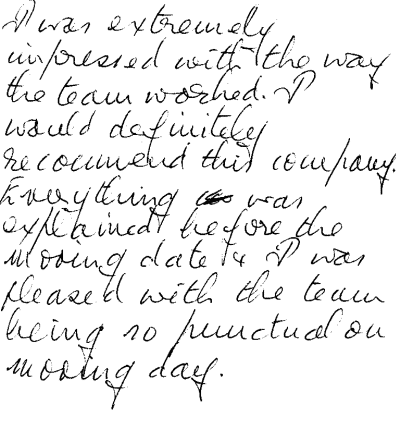 I was extremely
impressed with the way
the team worked. I
would definitely
recommend this company.
Everything was
explained before the
moving date & I was
pleased with the team
being so punctual on
moving day.